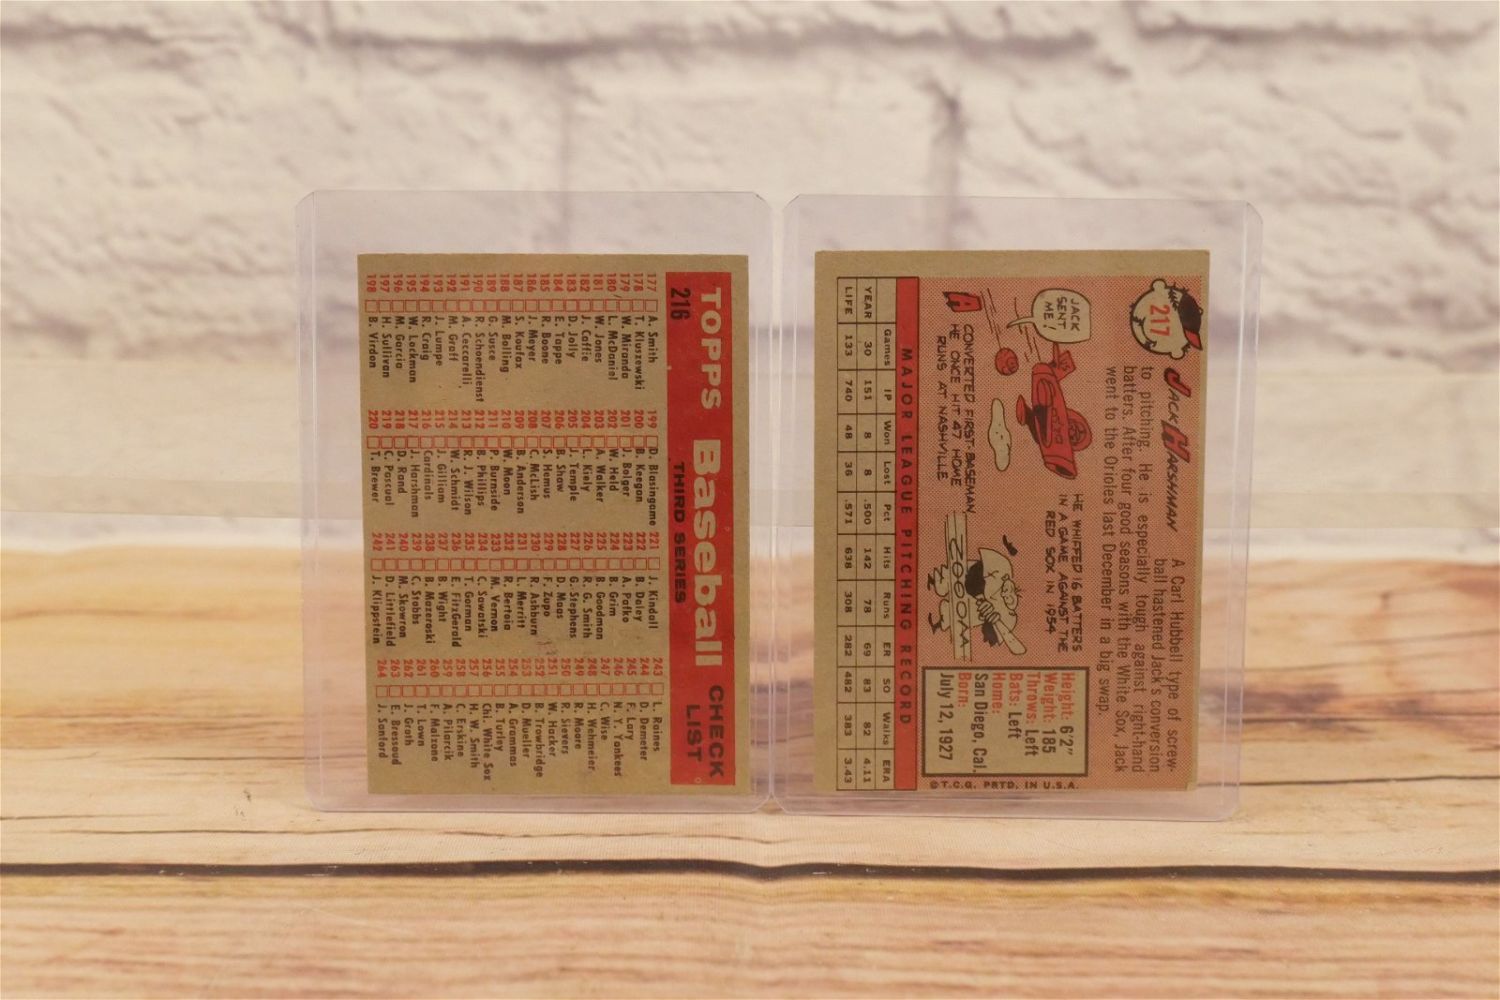 TOPPS Baseball CHECK LIST
216
THIRD SERIES
177 A. Smith
178 T. Kluszewski
179 W. Miranda
180 L. McDaniel
181 W. Jones
182 J. Caffie
183 D. Jolly
184 E. Tappe
185 R. Boone
186 J. Meyer
187 S. Koufax
188 M. Bolling
189 G. Susce
190 R. Schoendienst
191 A. Ceccarelli
192 M. Graff
193 J. Lumpe
194 R. Craig
195 W. Lockman
196 M. Garcia
197 H. Sullivan
198 B. Virdon
199 D. Blasingame
200 B. Keegan
201 J. Bolger
202 W. Held
203 A. Walker
204 L. Kiely
205 J. Temple
206 B. Shaw
207 S. Hamus
208 C. McLish
209 B. Anderson
210 W. Moon
211 P. Burnside
212 B. Phillips
213 R. J. Wilson
214 W. Schmidt
215 J. Gilliam
216 Cardinals
217 J. Harshman
218 D. Rand
219 C. Pascual
220 T. Brewer
221 J. Kindall
222 B. Daley
223 A. Pafko
224 B. Grim
225 B. Goodman
226 R. G. Smith
227 G. Stephens
228 D. Maas
229 F. Zupo
230 R. Ashburn
231 L. Merritt
232 R. Bertoia
233 M. Vernon
234 C. Sawatski
235 T. Gorman
236 E. FitzGerald
237 B. Wight
238 B. Mazeroski
239 C. Stobbs
240 M. Skowron
241 D. Littlefield
242 J. Klippstein
243 L. Raines
244 D. Demeter
245 F. Lary
246 N. Y. Yankees
247 C. Wise
248 H. Wehmeier
249 R. Moore
250 R. Sievers
251 W. Hacker
252 B. Trowbridge
253 D. Mueller
254 A. Grammas
255 B. Turley
256 Chi. White Sox
257 H. W. Smith
258 C. Erskine
259 A. Pilarcik
260 F. Malzone
261 T. Lown
262 J. Groth
263 E. Bressoud
264 J. Sanford
217
JACK HARSHMAN
A Carl Hubbell type of screw-
ball hastened Jack's conversion
to pitching. He is especially tough against right-hand
batters. After four good seasons with the White Sox, Jack
went to the Orioles last December in a big swap.
JACK SENT ME!
A CONVERTED FIRST-BASEMAN,
HE ONCE HIT 47 HOME
RUNS AT NASHVILLE.
HE WHIFFED 16 BATTERS
IN A GAME AGAINST THE
RED SOX IN 1954
ZOOOOM
Height: 6'2"
Weight: 185
Throws: Left
Bats: Left
Home:
San Diego, Cal.
Born:
July 12, 1927
©T.C.G. PRTD. IN U.S.A.
MAJOR LEAGUE PITCHING RECORD
Games IP Won Lost Pct Hits Runs ER SO Walks ERA
YEAR 30 151 8 8 .500 142 78 69 83 82 4.11
LIFE 133 740 48 36 .571 638 308 282 482 383 3.43